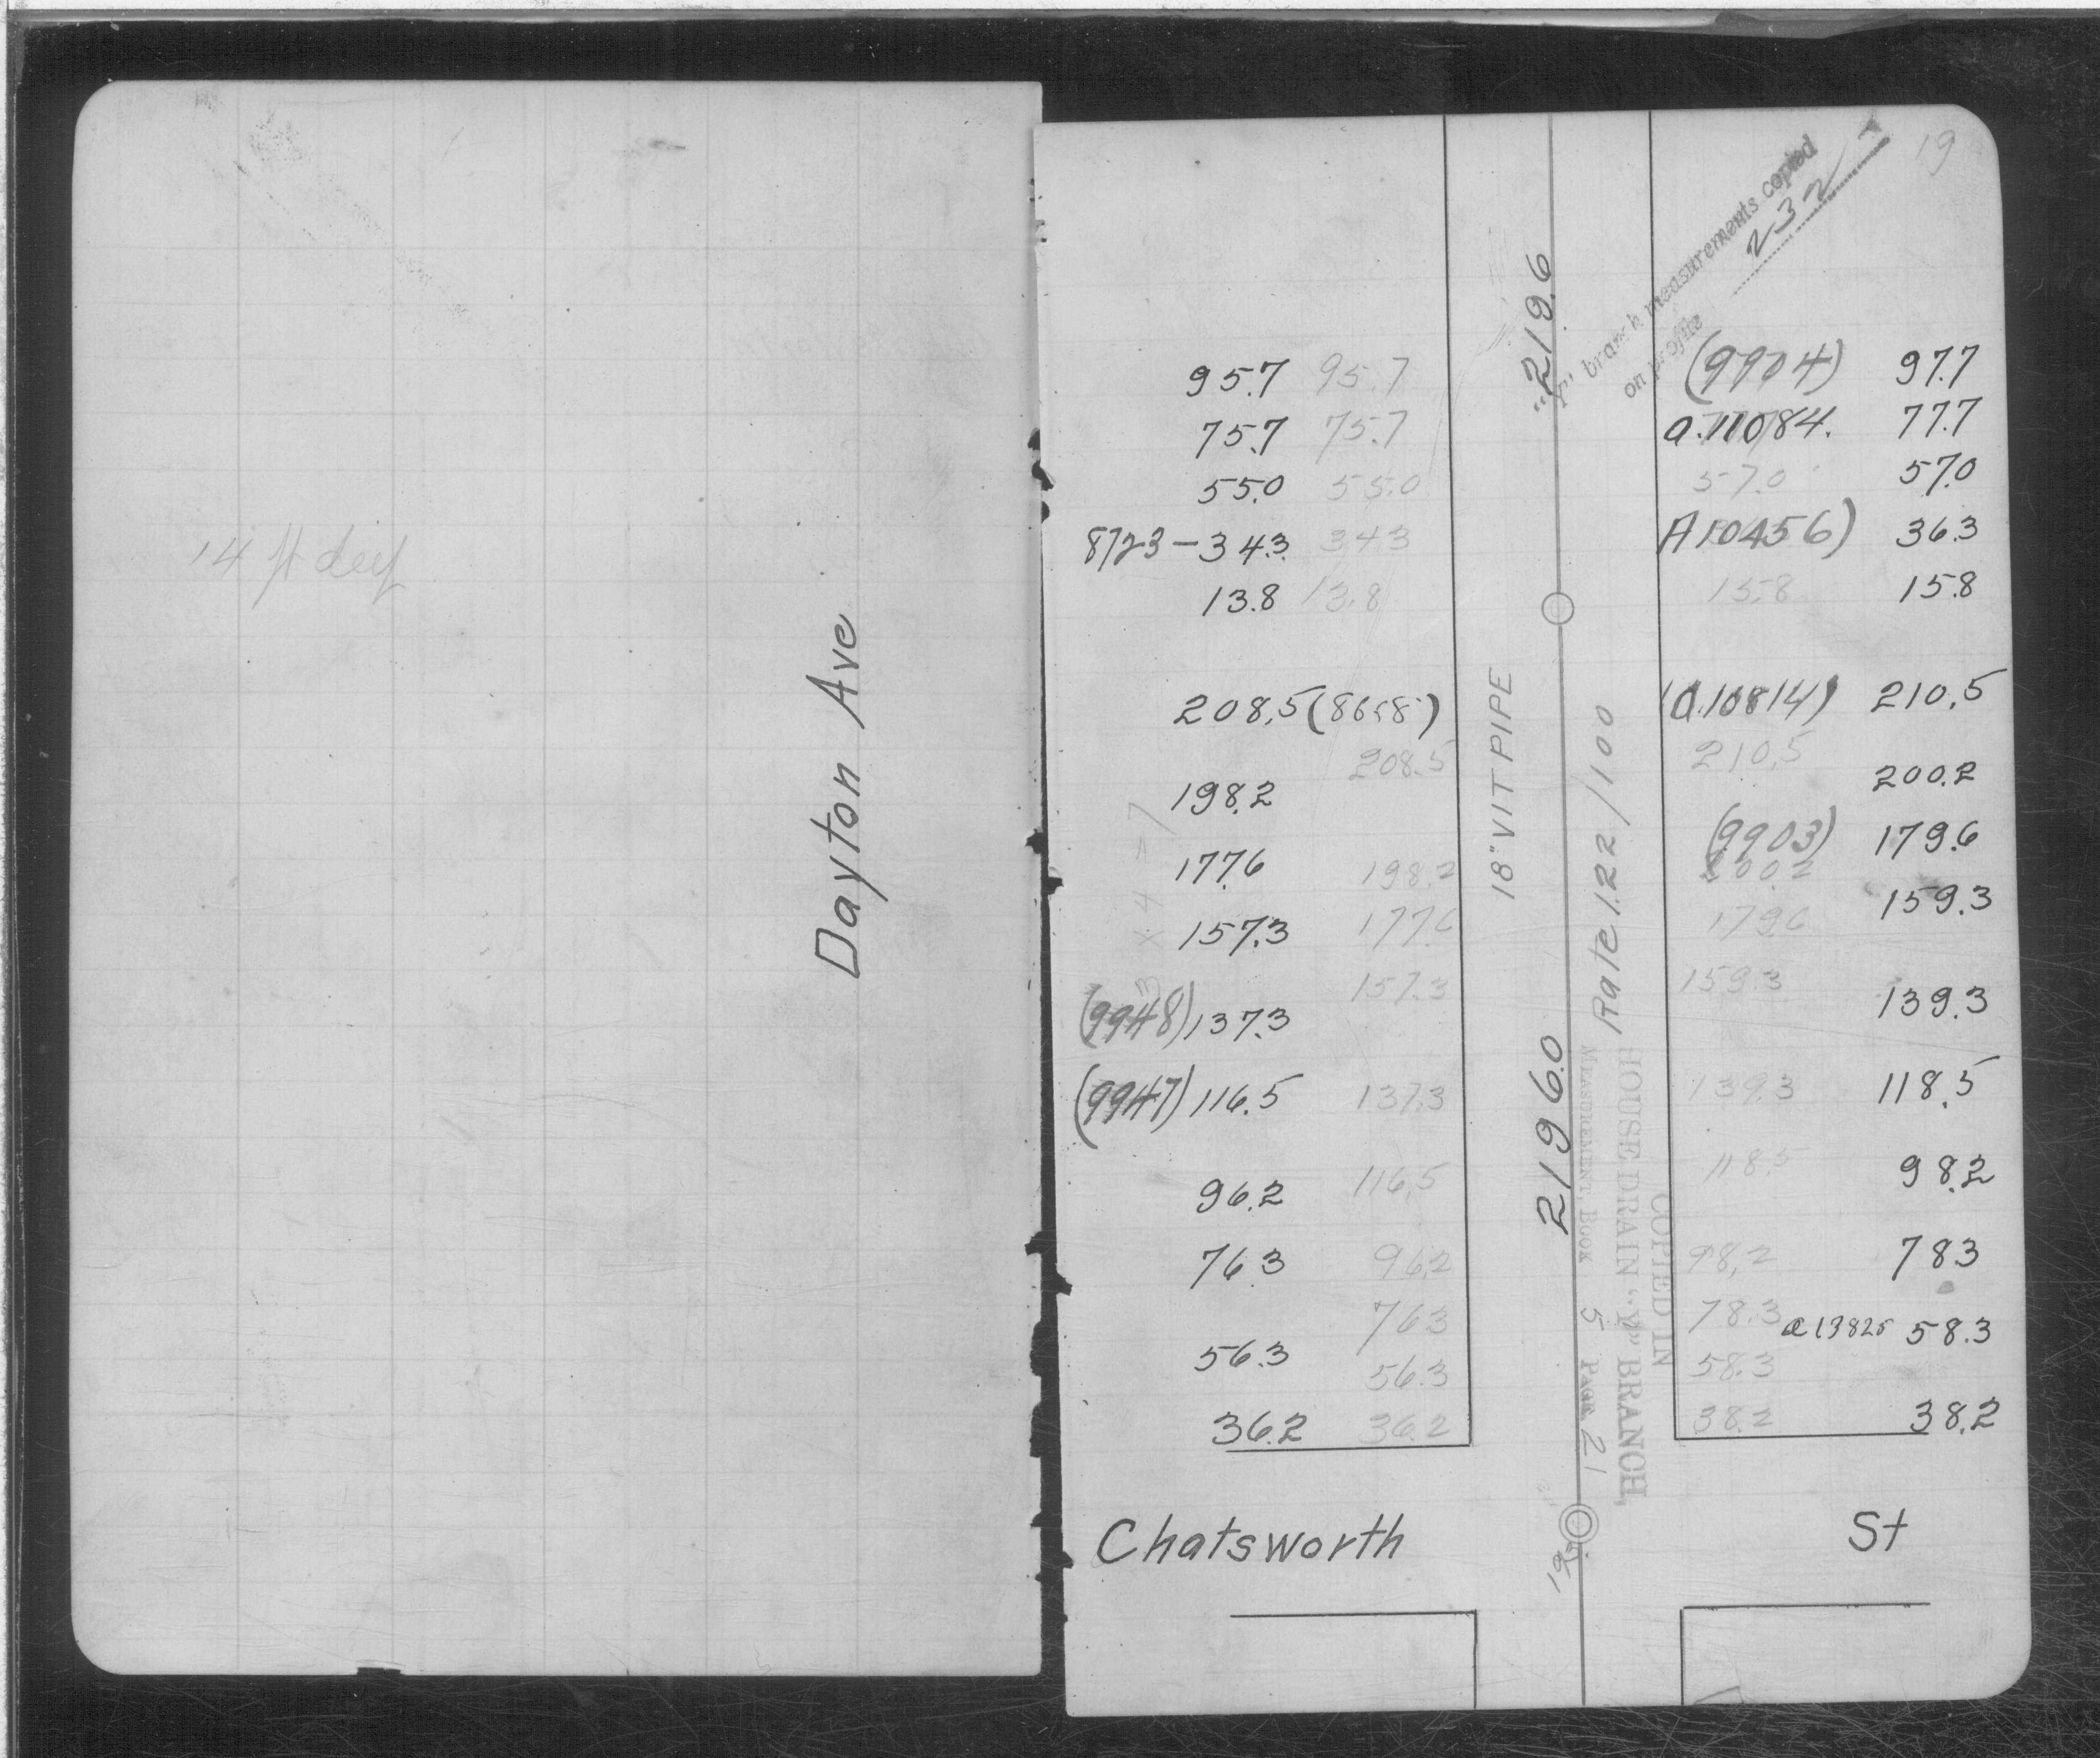 14 ft deep
Dayton Ave
19
"Y" branch measurements copied
on profile
232
219.6
95.7 95.7
(9904) 97.7
75.7 75.7
a.11084. 77.7
55.0 55.0
57.0 57.0
8723 - 34.3 34.3
A10456) 36.3
13.8 13.8
15.8 15.8
208.5 (8658)
(a.10814) 210.5
208.5
210.5
198.2
200.2
177.6 198.2
(9903) 179.6
200.2
157.3 177.6
179.6 159.3
157.3
159.3
(9948) 137.3
139.3
(9947) 116.5 137.3
139.3 118.5
96.2 116.5
118.5 98.2
76.3 96.2
98.2 78.3
76.3
78.3 a13825 58.3
56.3 56.3
58.3
36.2 36.2
38.2 38.2
18" VIT PIPE
219 60
Rate 1.22/100
COPIED IN
HOUSE DRAIN "Y" BRANCH,
MEASUREMENT BOOK 5 PAGE 21
Chatsworth St